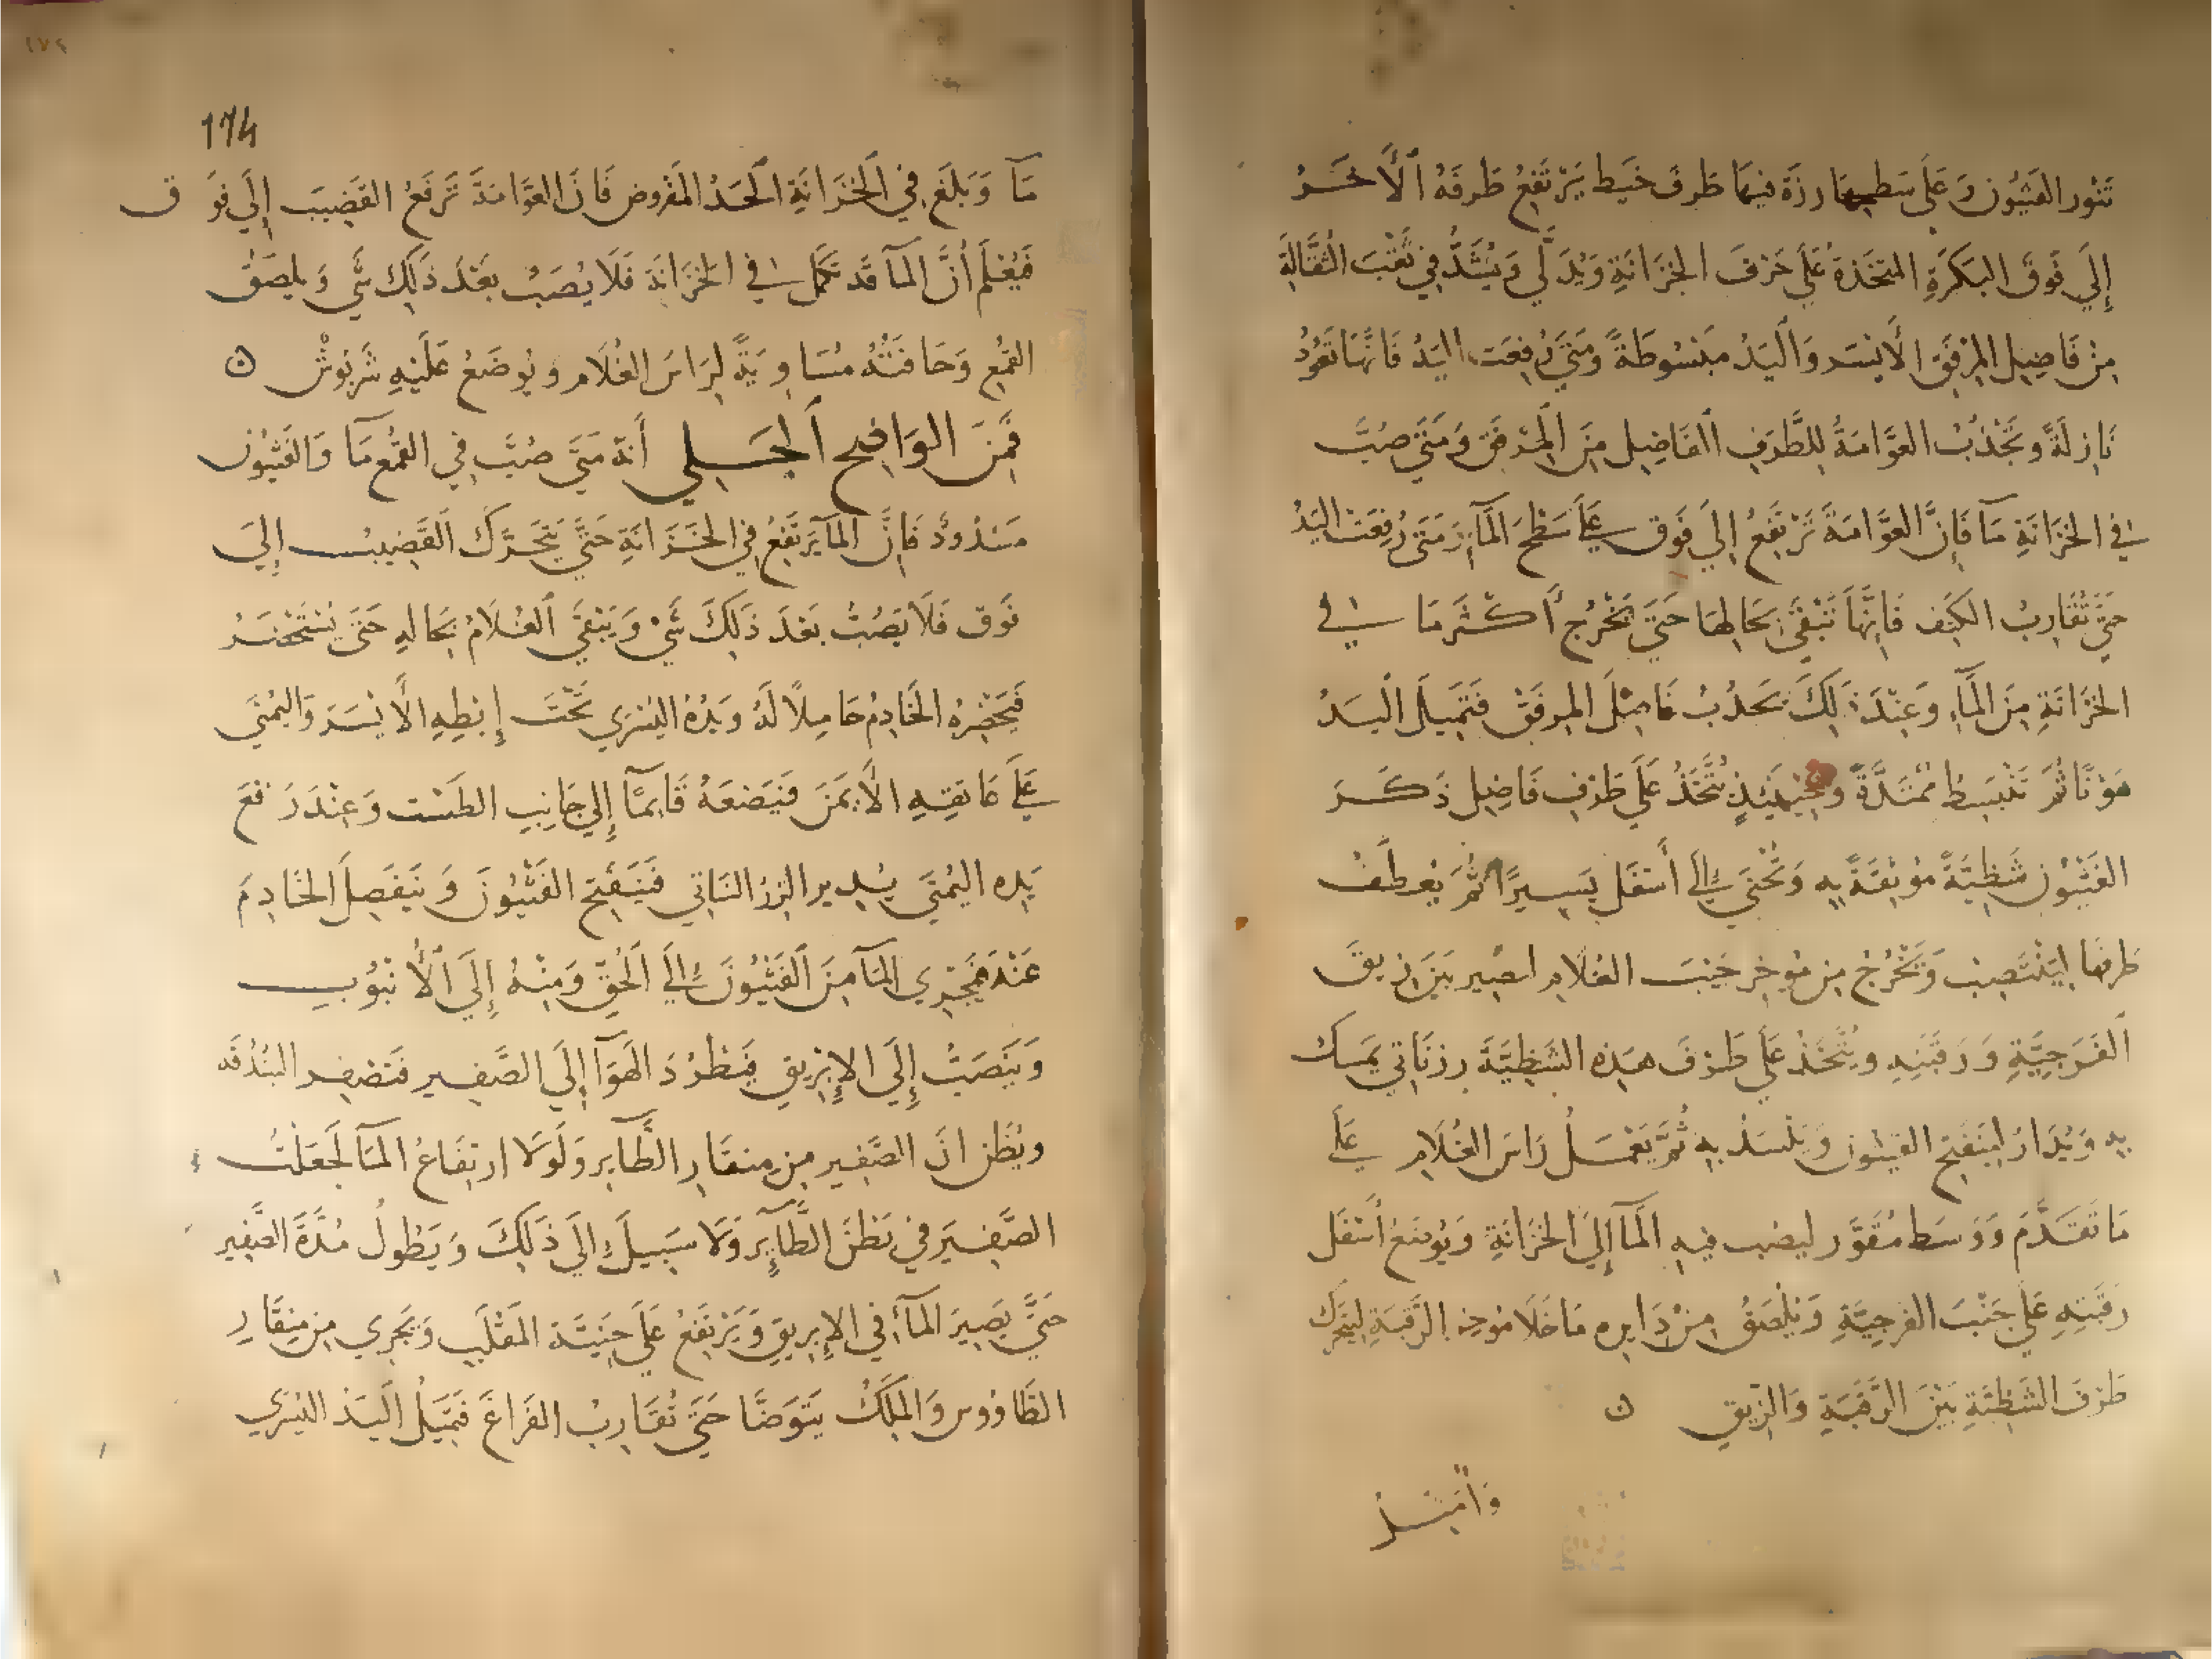 تَنُّور الفَثْيُون وَعَلَى سَطحِهَا رزَة فِيهَا طَرف خَيط يَرْتَفِعُ طَرفَهُ الْأَخَرُ
إِلَى فَوق البَكَرَةِ المتخَذة عَلَى حَرْفَ الخِزَانَةِ وَيُدَلَّي وَيُشَدُّ فِي ثُقْبَ الثقَّالَةِ
مِنْ فَاضِل المِرْفَقِ الأَيْسَر وَاليَدُ مَبْسُوطَةً وَمَتَى رُفِعَت اليَدُ فَانَّهَا تَعُودُ
نَازِلَةً وَتَجْذِبُ العَوَّامَةُ لِلطَّرَفِ الفَاضِل مِنَ المِرْفَق وَمَتَى صُبَّ
في الخزَانَةِ مَآ فَإِنَّ العَوَّامَةَ تَرْتَفِعُ إِلَى فَوق عَلَى سَطْحِ المَآ وَمَتَى رُفِعَتْ اليَدُ
حَتَّى تُقَارِبُ الكَتِف فَإِنَّهَا تَبْقَى بِحَالِهَا حَتَّى يَخْرُج أَكْثَرمَا في
الخزَانَةِ مِنَ المَآءِ وَعِنْدَ ذَلِكَ تَجذُبُ فَاضِلَ المِرفَق فَتَمِيلُ اليَدُ
هَوْنًا ثُمَّ تَنْبَسِطُ مُمْتَدَّةً وَحِينَئِذٍ يُتَّخَذُ عَلَى طَرَفِ فَاضِل ذَكَرَ
الفَثْيُون شَظِيَّةً مُوثقَةً بِهِ وَتُحْنَى إِلَى أَسْفَل يَسِيرًا ثُمَّ يُعطَفُ
طَرفهَا لِيَنْتَصِب وَتَخْرُجُ مِن مُوخر جَيْب الغُلَام لتصير بَيْنَ زيق
الفَرَجِيَّةِ وَرَقبَتِهِ وَيُتَّخَذُ عَلَى طَرفَ هَذِهِ الشَظِيَّةَ رزنَاتِي يمسَك
بِهِ وَيُدَارُ لِيَنفَتِح الفثيُون وَيَنْسَدُّ بِهِ ثُمَّ يُعْمَلُ رَاسَ الغُلَام عَلَى
مَا تَقَدَّمَ وَوَسَطه مُقَوَّر ليصُبّ فيهِ المَآ إِلَى الخزَانَةِ وَيُوضَعُ أَسْفَل
رَقَبَتِهِ عَلَى جَنْبَ الفرجيَّةِ وَيُلصَقُ مِنْ دَايره مَا خَلَا مُوخر الرَّقبَةِ ليَتَحَرَّك
طَرفَ الشَظِيَّةِ بَيْنَ الرَّقَبَةِ وَالزيق ن
174
مَآ وَبَلَغَ فِي الخزَانَةِ الحَدُ المَفْرُوض فَانَ العَوَّامَةَ تَرفَعُ القَضِيبَ إِلَى فَوق
فَيُعْلَم أَنَّ المَآ قَد تَكمل في الخزَانَة فَلَا يُصَبُ بَعْدَ ذَلِكَ شَي وَيلصَق
القمْع وَحَافَتُهُ مُسَاوِيَةً لِرَاسَ الغُلَام وَيُوضَعُ عَلَيْهِ شَربُوشْ ن
فَمِنَ الوَاضِح الجَلِي أَنهُ مَتَى صُبَّ فِي القُمْع مَا وَالفَثْيُون
مَسْدُودٌ فَإِنَّ المَآ يَرتَفِعُ فِي الخزَانَةِ حَتَّى يَتَحَرَّكَ القَضِيبُ إِلَى
فَوق فَلَا يَصُبُّ بَعْدَ ذَلِكَ شَيْ وَيَبْقَى الغُلَامُ بِحَالِهِ حَتَّى يُسْتَحْضَرُ
فَيُحْضِرُهُ الخَادِمُ حَامِلًا لَهُ وَيَدُهُ اليُسْرَى تَحْتَ إِبْطِهِ الأَيْسَرَ وَاليُمْنَى
عَلَى عَاتِقِهِ الأَيمَنَ فَيَضعَهُ قَايِمًا إِلَى جَانِبِ الطَست وَعِنْدَ رَفعَ
يَدِه اليُمْنَى يُدِير الزِرُ النَاتِي فَيَنفَتِحَ الفَثْيُونَ وَيَنْفَصِل الخَادِمَ
عَنْهُ فَيَجْرِي المَآ مِنَ الفَثْيُونَ إِلَى الحُقِّ وَمِنْهُ إِلَى الأُنْبُوبِ
وَيَنصَبُّ إِلَى الإِبْرِيق فَيَطرُدَ الهَوَآ إِلَى الصَّفِير فَتصْفِر البُندُقَه
وَيُظَن انَ الصَّفِير مِن مِنقَارِ الطَّآيِر وَلَولَا ارتِفَاعُ المَآ لَجَعَلتُ
الصَّفِيرَ فِي بَطْنَ الطَّآيِر وَلَا سَبِيلَ إِلَى ذَلِكَ وَيَطُولُ مُدَّةَ الصَّفِير
حَتَّى يَصِيرَ المَآءُ فِي الإِبرِيق وَيَرْتَفِعُ عَلَى حنيَّةَ المَقْلَب وَيَجرِي مِن مِنقَارِ
الطَاوُوس وَالمَلِكُ يَتَوَضَّا حَتَّى تُقَارِبُ الفَرَاغَ فَتَمِيلُ اليَد اليُسْرَي